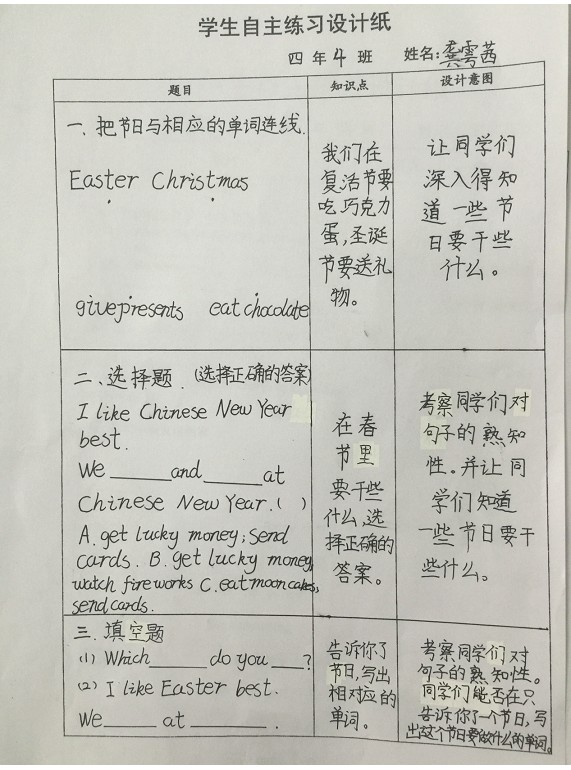 学生自主练习设计纸
四 年 4 班 姓名:龚雩茜
题目 知识点 设计意图
一、把节日与相应的单词连线.
Easter Christmas
givepresents eat chocolate
我们在
复活节要
吃巧克力
蛋,圣诞
节要送礼
物。
让同学们
深入得知
道一些节
日要干些
什么。
二、选择题.(选择正确的答案)
I like Chinese New Year
best.
We ______and______at
Chinese New Year.( )
A. get lucky money; send
cards. B. get lucky money,
watch fireworks C. eat moon cakes,
send cards.
在春
节里
要干些
什么,选
择正确的
答案。
考察同学们对
句子的熟知
性。并让同
学们知道
一些节日要干
些什么。
三.填空题
(1) Which______do you____?
(2) I like Easter best.
We_____ at ________.
告诉你了
节日,写出
相对应的
单词。
考察同学们对
句子的熟知性。
同学们能否在只
告诉你了一个节日,写
出这个节日要做什么的单词。